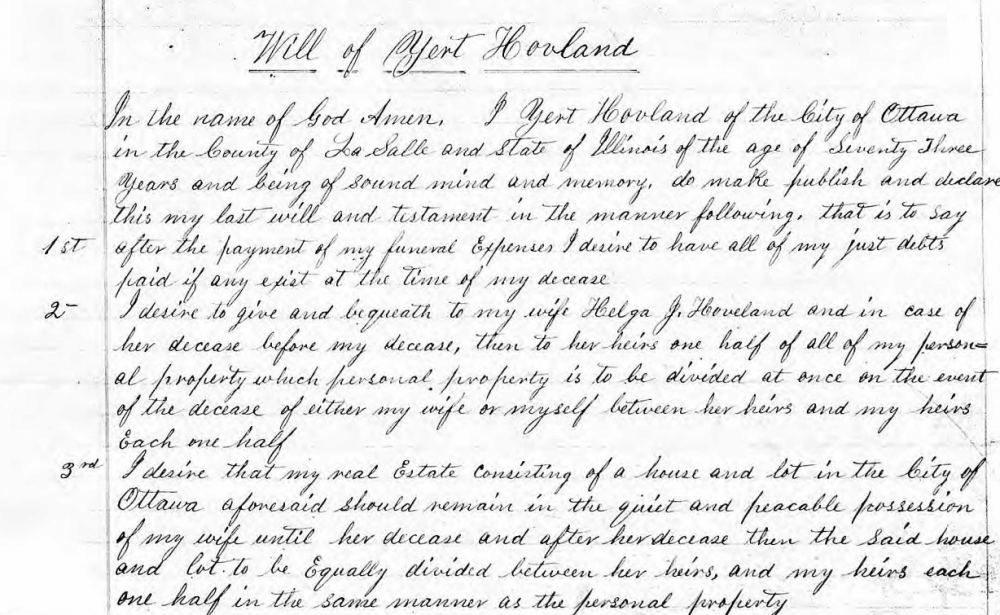 Will of Yert Hovland
In the name of God Amen. I Yert Hovland of the City of Ottawa
in the County of La Salle and State of Illinois of the age of Seventy Three
Years and being of sound mind and memory, do make publish and declare
this my last will and testament in the manner following, that is to say
1st after the payment of my funeral Expenses I desire to have all of my just debts
paid if any exist at the time of my decease
2 I desire to give and bequeath to my wife Helga J. Hoveland and in case of
her decease before my decease, then to her heirs one half of all of my person=
al property which personal property is to be divided at once on the event
of the decease of either my wife or myself between her heirs and my heirs
Each one half
3rd I desire that my real Estate consisting of a house and lot in the City of
Ottawa aforesaid should remain in the quiet and peacable possession
of my wife until her decease and after her decease then the said house
and lot to be Equally divided between her heirs, and my heirs each
one half in the same manner as the personal property